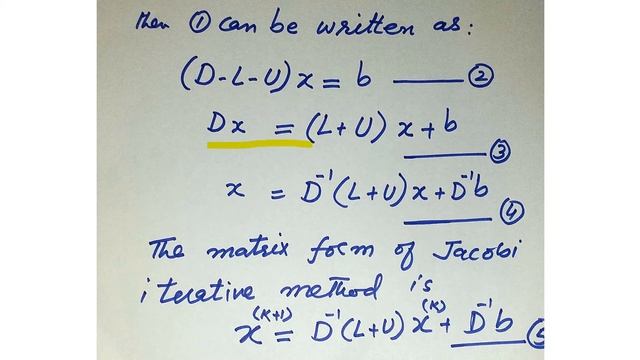 then ① can be written as:
(D-L-U)x = b —— ②
Dx = (L+U) x + b —— ③
x = D⁻¹(L+U)x + D⁻¹b —— ④
The matrix form of Jacobi
iterative method is
x⁽ᴷ⁺¹⁾ = D⁻¹(L+U) x⁽ᴷ⁾ + D⁻¹b —— ⑤